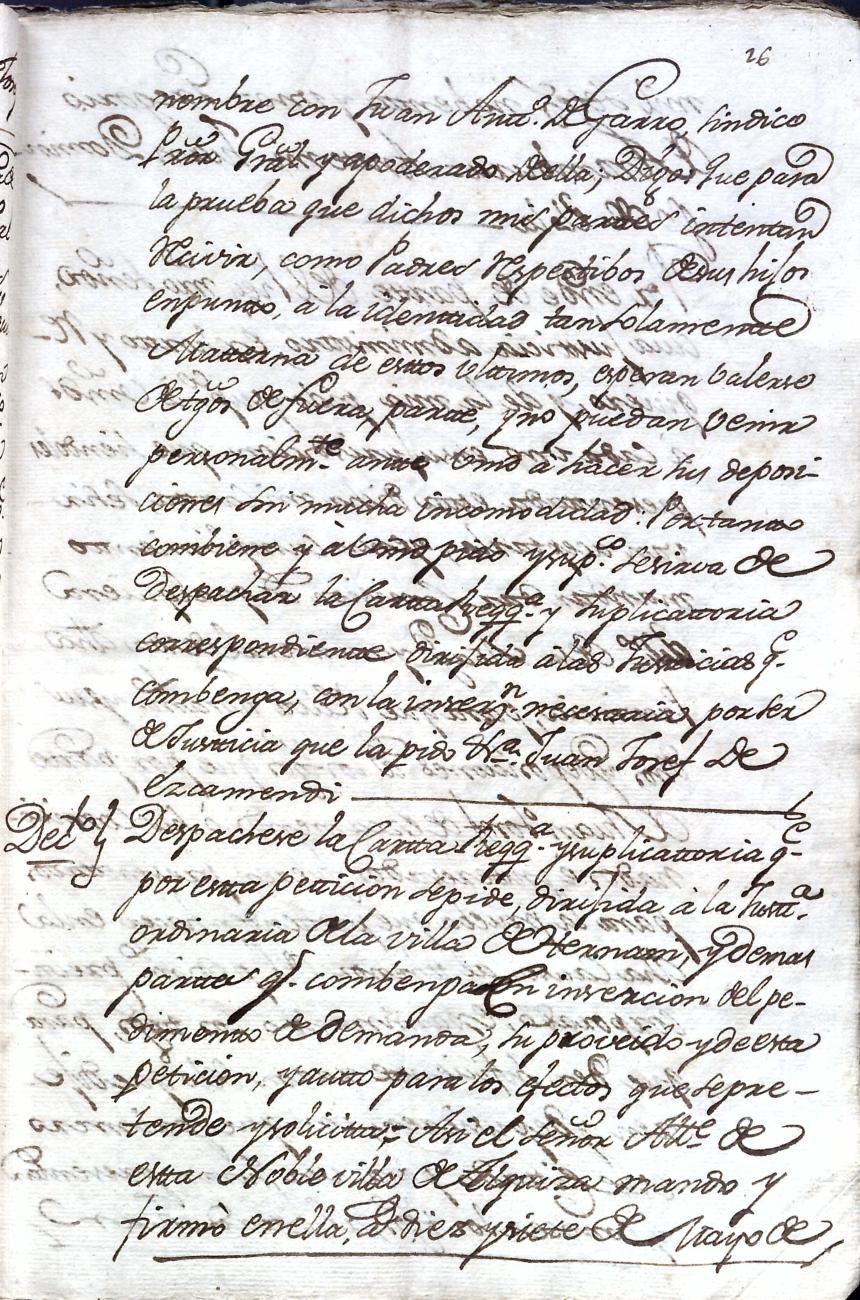 26
nombre con Juan Antt.o de Garro, sindico
Pror Gral y apoderado della; Digo: que para
la prueba que dichos mis partes intentan
Recivir, como Padres Respectibos de sus hijos
en punto, à la identidad tan solamente
Materna de estos ultimos, esperan valerse
de tgos de fuera parte, q no puedan venir
personalm.te ante Vmd à hacer sus deposi-
ciones sin mucha incomodidad. Por tanto
combiene y à Vmd pido y sup.co se sirva de
Despachar la Cartta Reqq.a y suplicattoria
correspondiente dirijida à las Justicias q.e
combenga, con la inserz.n nesesaria por ser
de Justicia que la pido &.a Juan Josef de
Ezcamendi
Dec.to
Despachese la Cartta Reqq.a y suplicattoria q.e
por estta pettición se pide, dirijida à la Justt.a
ordinaria de la villa de Hernani, y demas
parttes q.e combenga con insercion del pe-
dimento de demanda, su proveido y de esta
petición, y autto para los efectos que se pre-
tende y solicitta: Asi el señor Alt.e de
estta Noble villa de mandó y
firmó en ella, à diez y siete de Mayo de